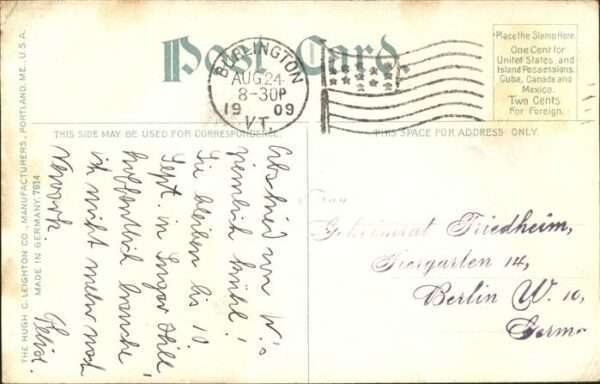 Post Card.
BURLINGTON
AUG 24
8-30P
1909
VT.
Place the Stamp Here
One Cent for
United States and
Island Possessions,
Cuba, Canada and
Mexico.
Two Cents
For Foreign.
THIS SIDE MAY BE USED FOR CORRESPONDENCE.
THIS SPACE FOR ADDRESS ONLY.
THE HUGH C. LEIGHTON CO., MANUFACTURERS, PORTLAND, ME., U.S.A.
MADE IN GERMANY. 7614
Abschied von W.
ziemlich kühl!
Sie bleiben bis 10.
Sept. in Sugar Hill
hoffentlich brauche
ich nicht mehr nach
Newyork.
Frau
Geheimrat Friedheim,
Tiergarten 14,
Berlin W. 10,
Germ